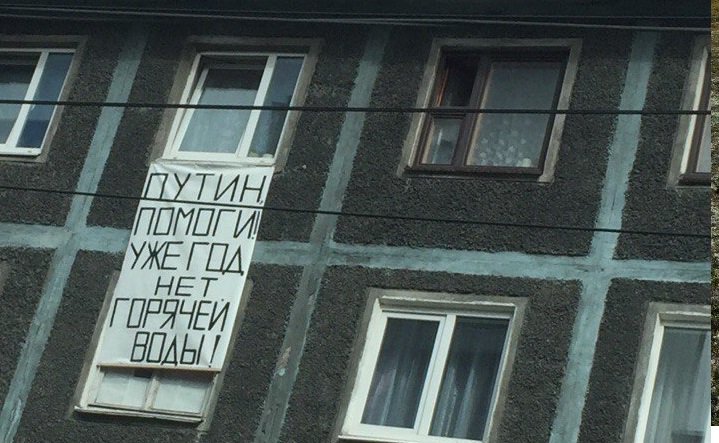 ПУТИН,
ПОМОГИ!
УЖЕ ГОД
НЕТ
ГОРЯЧЕЙ
ВОДЫ!